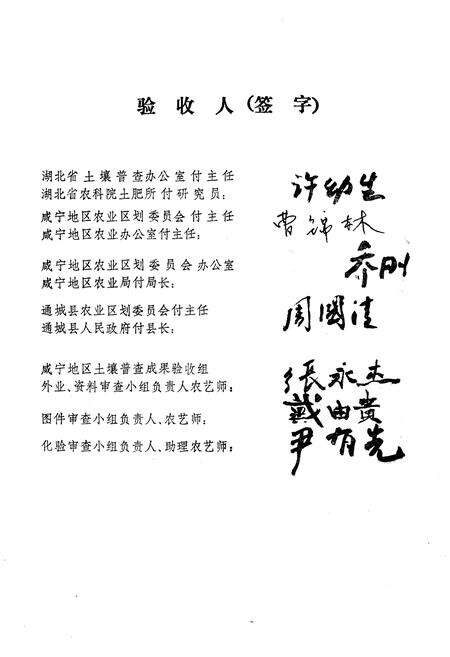 验收人(签字)
湖北省土壤普查办公室付主任
湖北省农科院土肥所付研究员：
许幼生
咸宁地区农业区划委员会付主任
咸宁地区农业办公室付主任：
曹锦林
咸宁地区农业区划委员会办公室
咸宁地区农业局付局长：
乔刚
通城县农业区划委员会付主任
通城县人民政府付县长：
周國清
咸宁地区土壤普查成果验收组
外业、资料审查小组负责人农艺师：
張永杰
图件审查小组负责人、农艺师：
戴由贵
化验审查小组负责人、助理农艺师：
尹有先